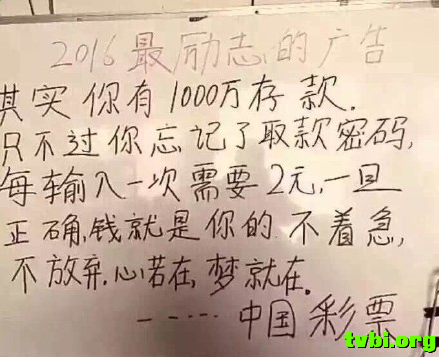 2016最励志的广告
其实你有1000万存款.
只不过你忘记了取款密码,
每输入一次需要2元,一旦
正确,钱就是你的.不着急,
不放弃.心若在,梦就在.
-----中国彩票
tvbi.org